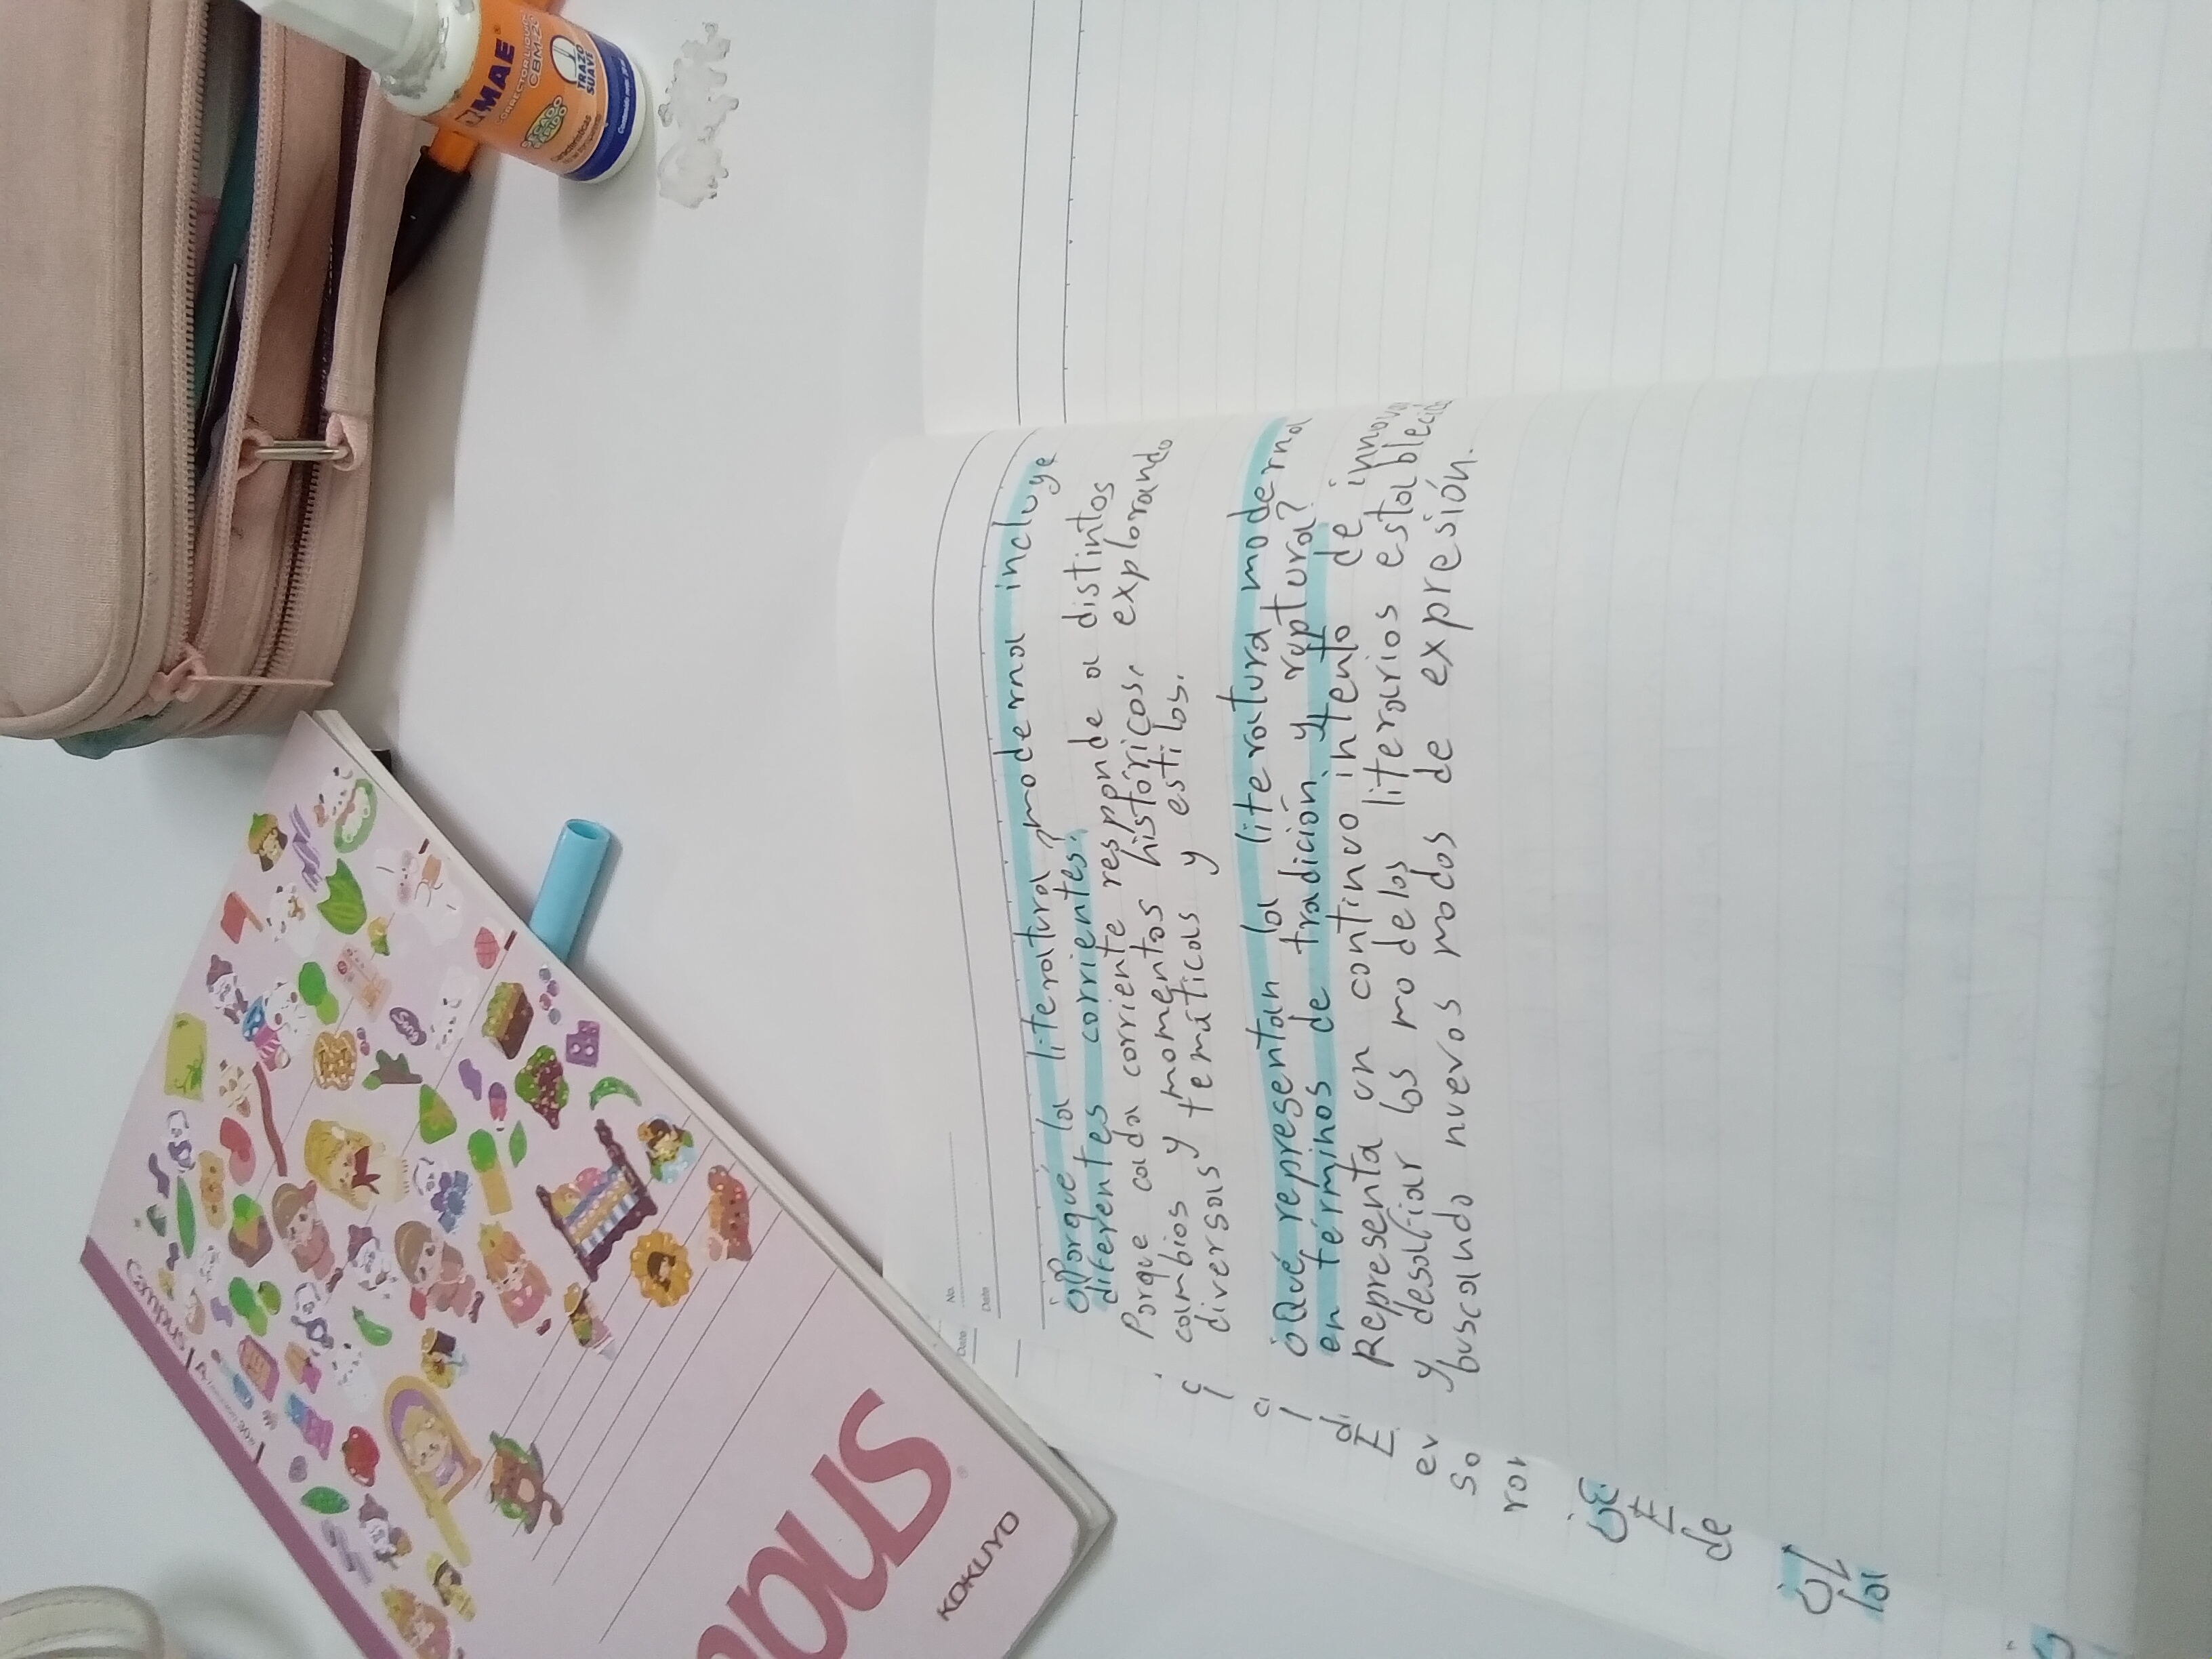 ¿Porqué la literatura moderna incluye
diferentes corrientes?
Porque cada corriente responde a distintos
cambios y momentos históricos, explorando
diversas temáticas y estilos.
¿Qué representan la literatura moderna
en términos de tradición y ruptura?
Representa un continuo intento de
y desafiar los modelos literarios
buscando nuevos modos de expresión.
No.
Date
Date
ev
so
rar
de
la
Campus
KOKUYO
MAE
CORRECTOR LÍQUIDO
SECADO RÁPIDO
TRAZO
SUAVE